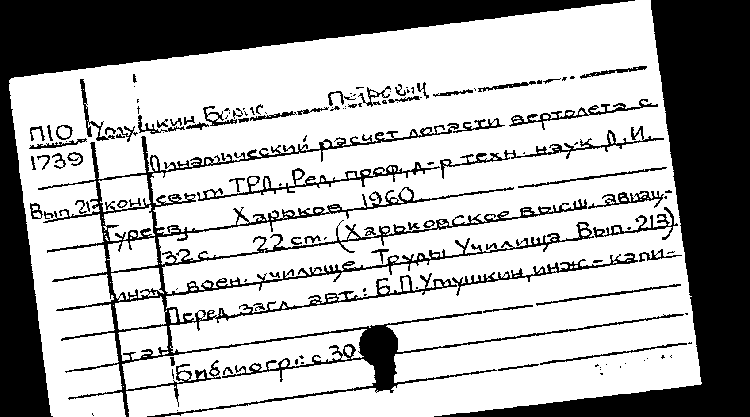 П10 Утушкин Борис Петрович
1739 Динамический расчет лопасти вертолета с
Вып. 213 концевым ТРД. Ред. проф., д-р техн. наук Д.И.
Гуреев. Харьков, 1960.
32 с. 22 см. (Харьковское высш. авиац.-
инж. воен. училище. Труды Училища. Вып. 213)
Перед загл. авт.: Б.П. Утушкин, инж.-капи-
тан.
Библиогр.: с. 30